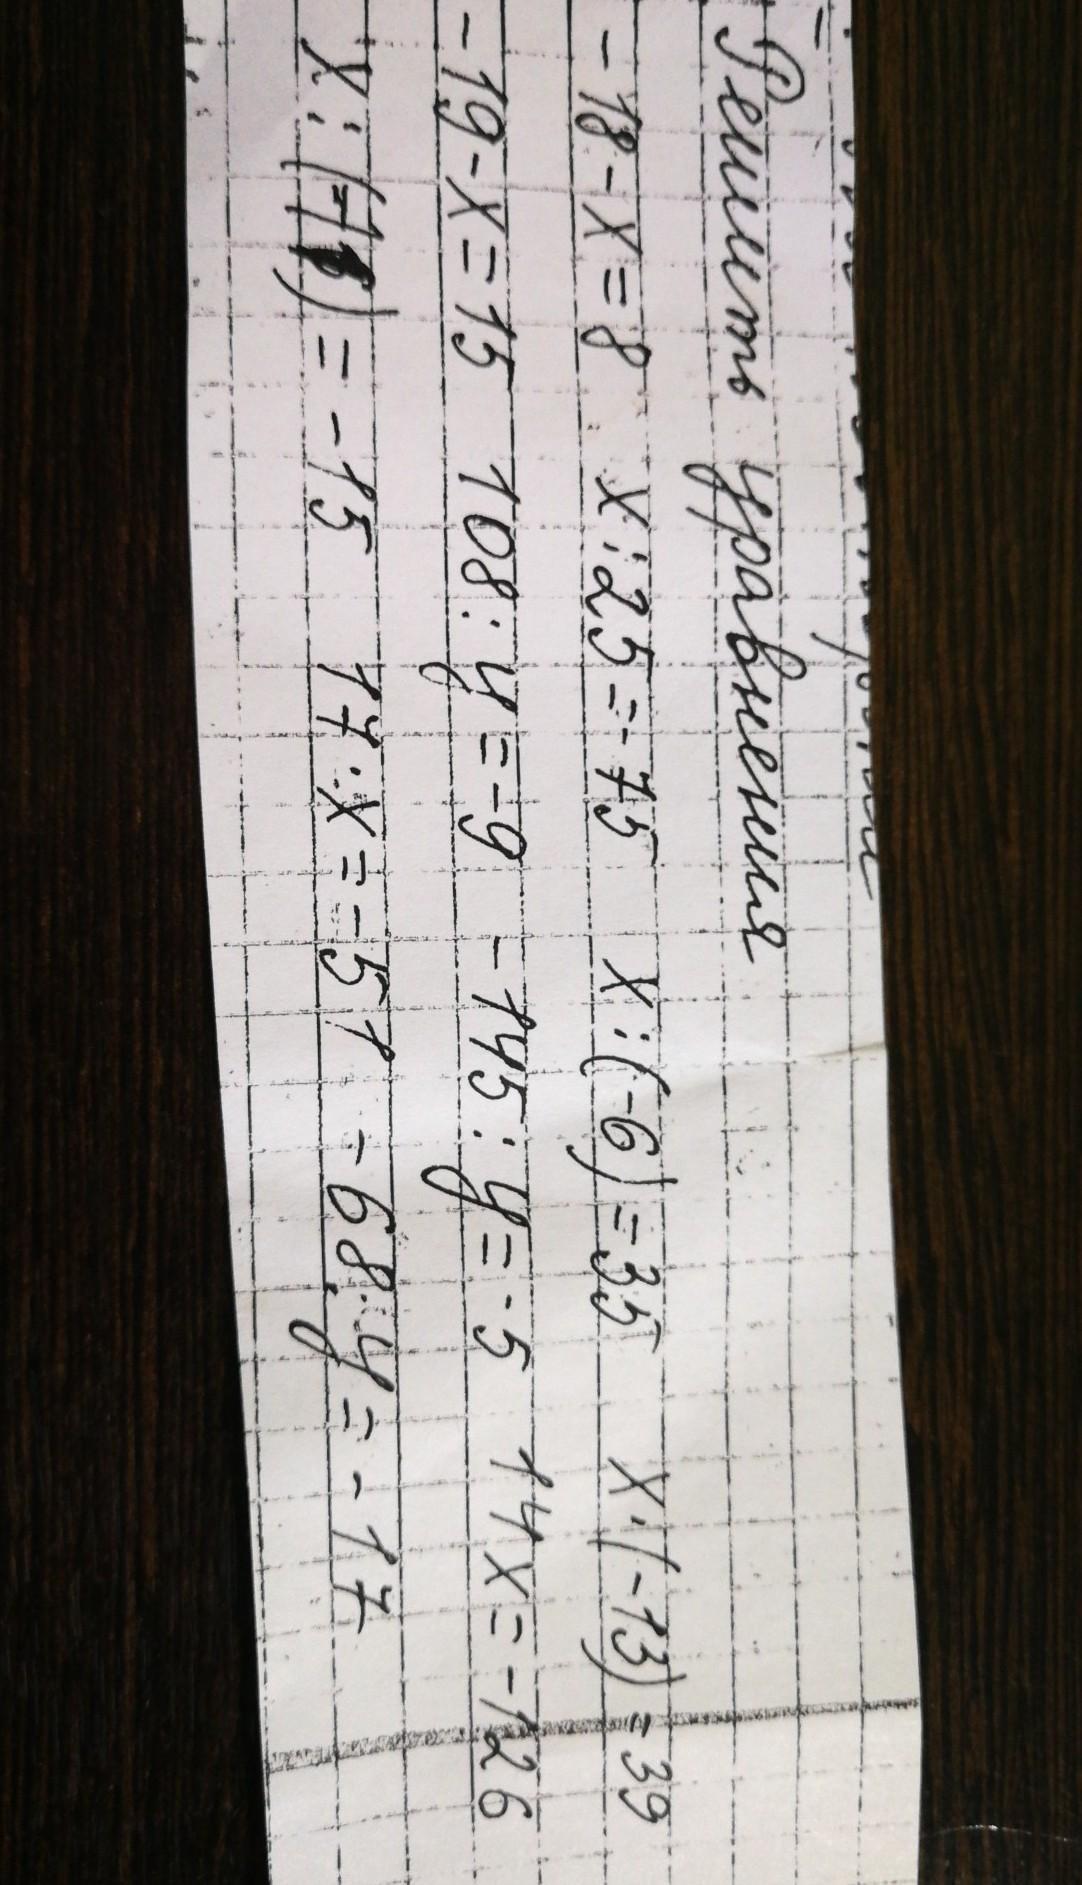 Решить уравнения
-18-x=8 x:25=-75 x:(-6)=35 x·(-13)=39
-19-x=15 108:y=-9 -145:y=-5 14x=-126
x:( )=-15 17·x=-51 -68:y=-17